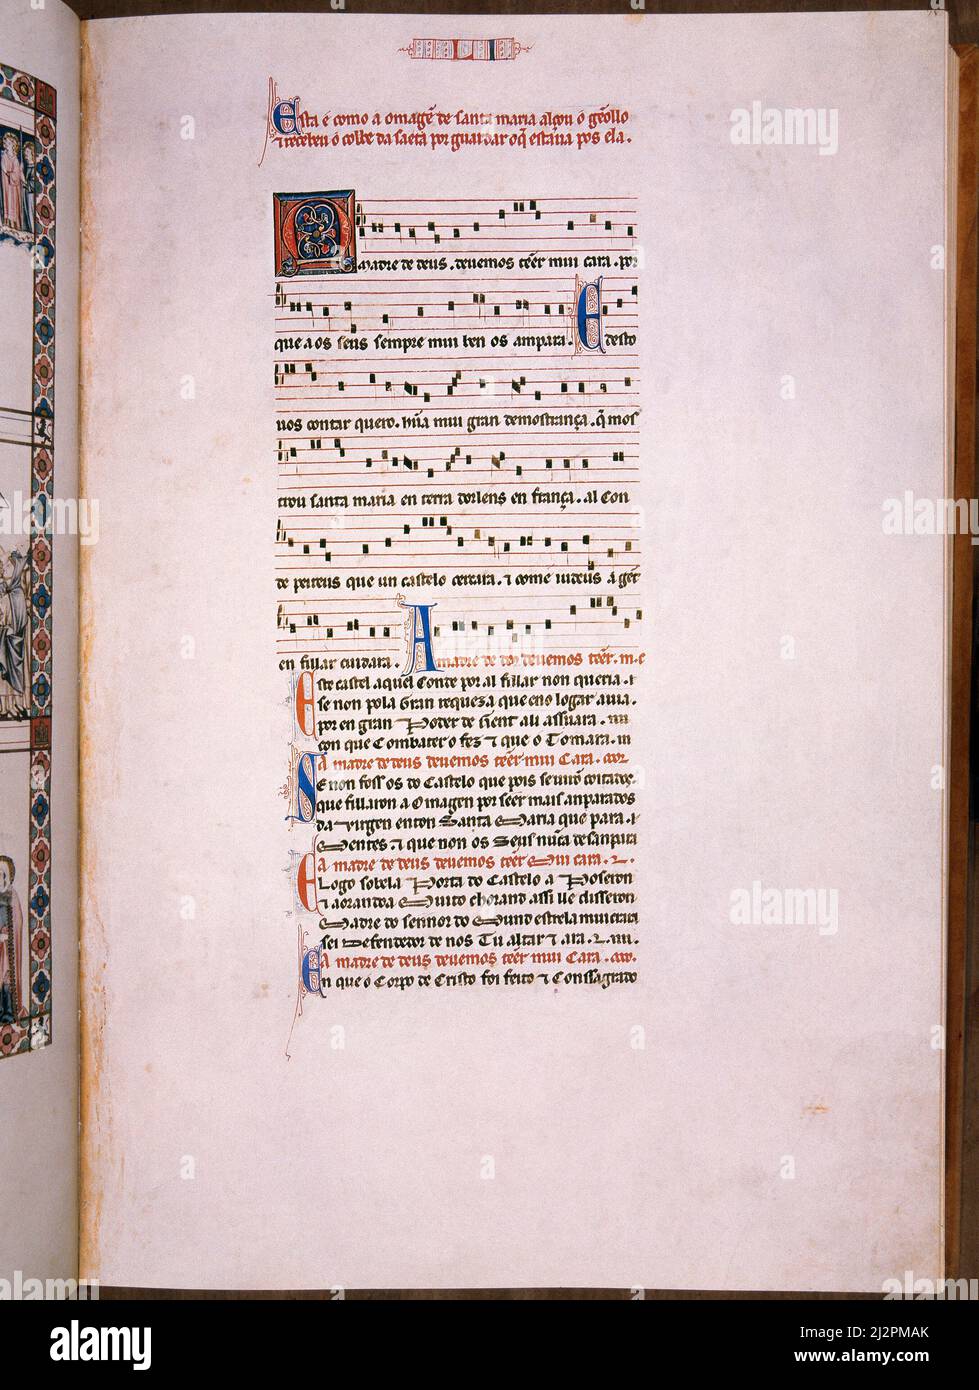 LI
Esta é como a omagẽ de santa maria alçou o geollo
⁊ recebeu o colbe da saeta por guardar oq̃ estaua pos ela.
A madre de deus. deuemos tẽer mui cara. por
que aos seus sempre mui ben os ampara. E desto
uos contar quero. hũa mui gran demostrança. q̃ mos
trou santa maria en terra dorlens en frança. al Con
de peiteus que un castelo cercara. ⁊ come iudeus a gẽt
en fillar cuidara. A madre de d̃s deuemos tẽer. m. c
Este castel aquel Conte por al fillar non queria.
se non pola Gran requeza que eno logar auia.
por en gran Poder de Gent ali assuara.
con que Combater o fez ⁊ que o Tomara.
A madre de deus deuemos tẽer mui Cara.
Se non foss os do Castelo que pois se uirõ coitados.
que fillaron a Omagen por seer mais anparados
da Virgen enton Santa Maria que para
Mentes. ⁊ que non os Seus nũca desanpara
A madre de deus deuemos tẽer Mui cara.
E Logo sobela Porta do Castelo a Poseron
⁊ aorandoa Muito chorand assi lle disseron
Madre do sennor do Mund estrela mui crara
sei Defendedor de nos Tu altar ⁊ ara.
A madre de deus deuemos tẽer mui Cara.
En que o Corpo de Cristo foi feito ⁊ Conssagrado
alamy
Image ID: 2J2PMAK
www.alamy.com